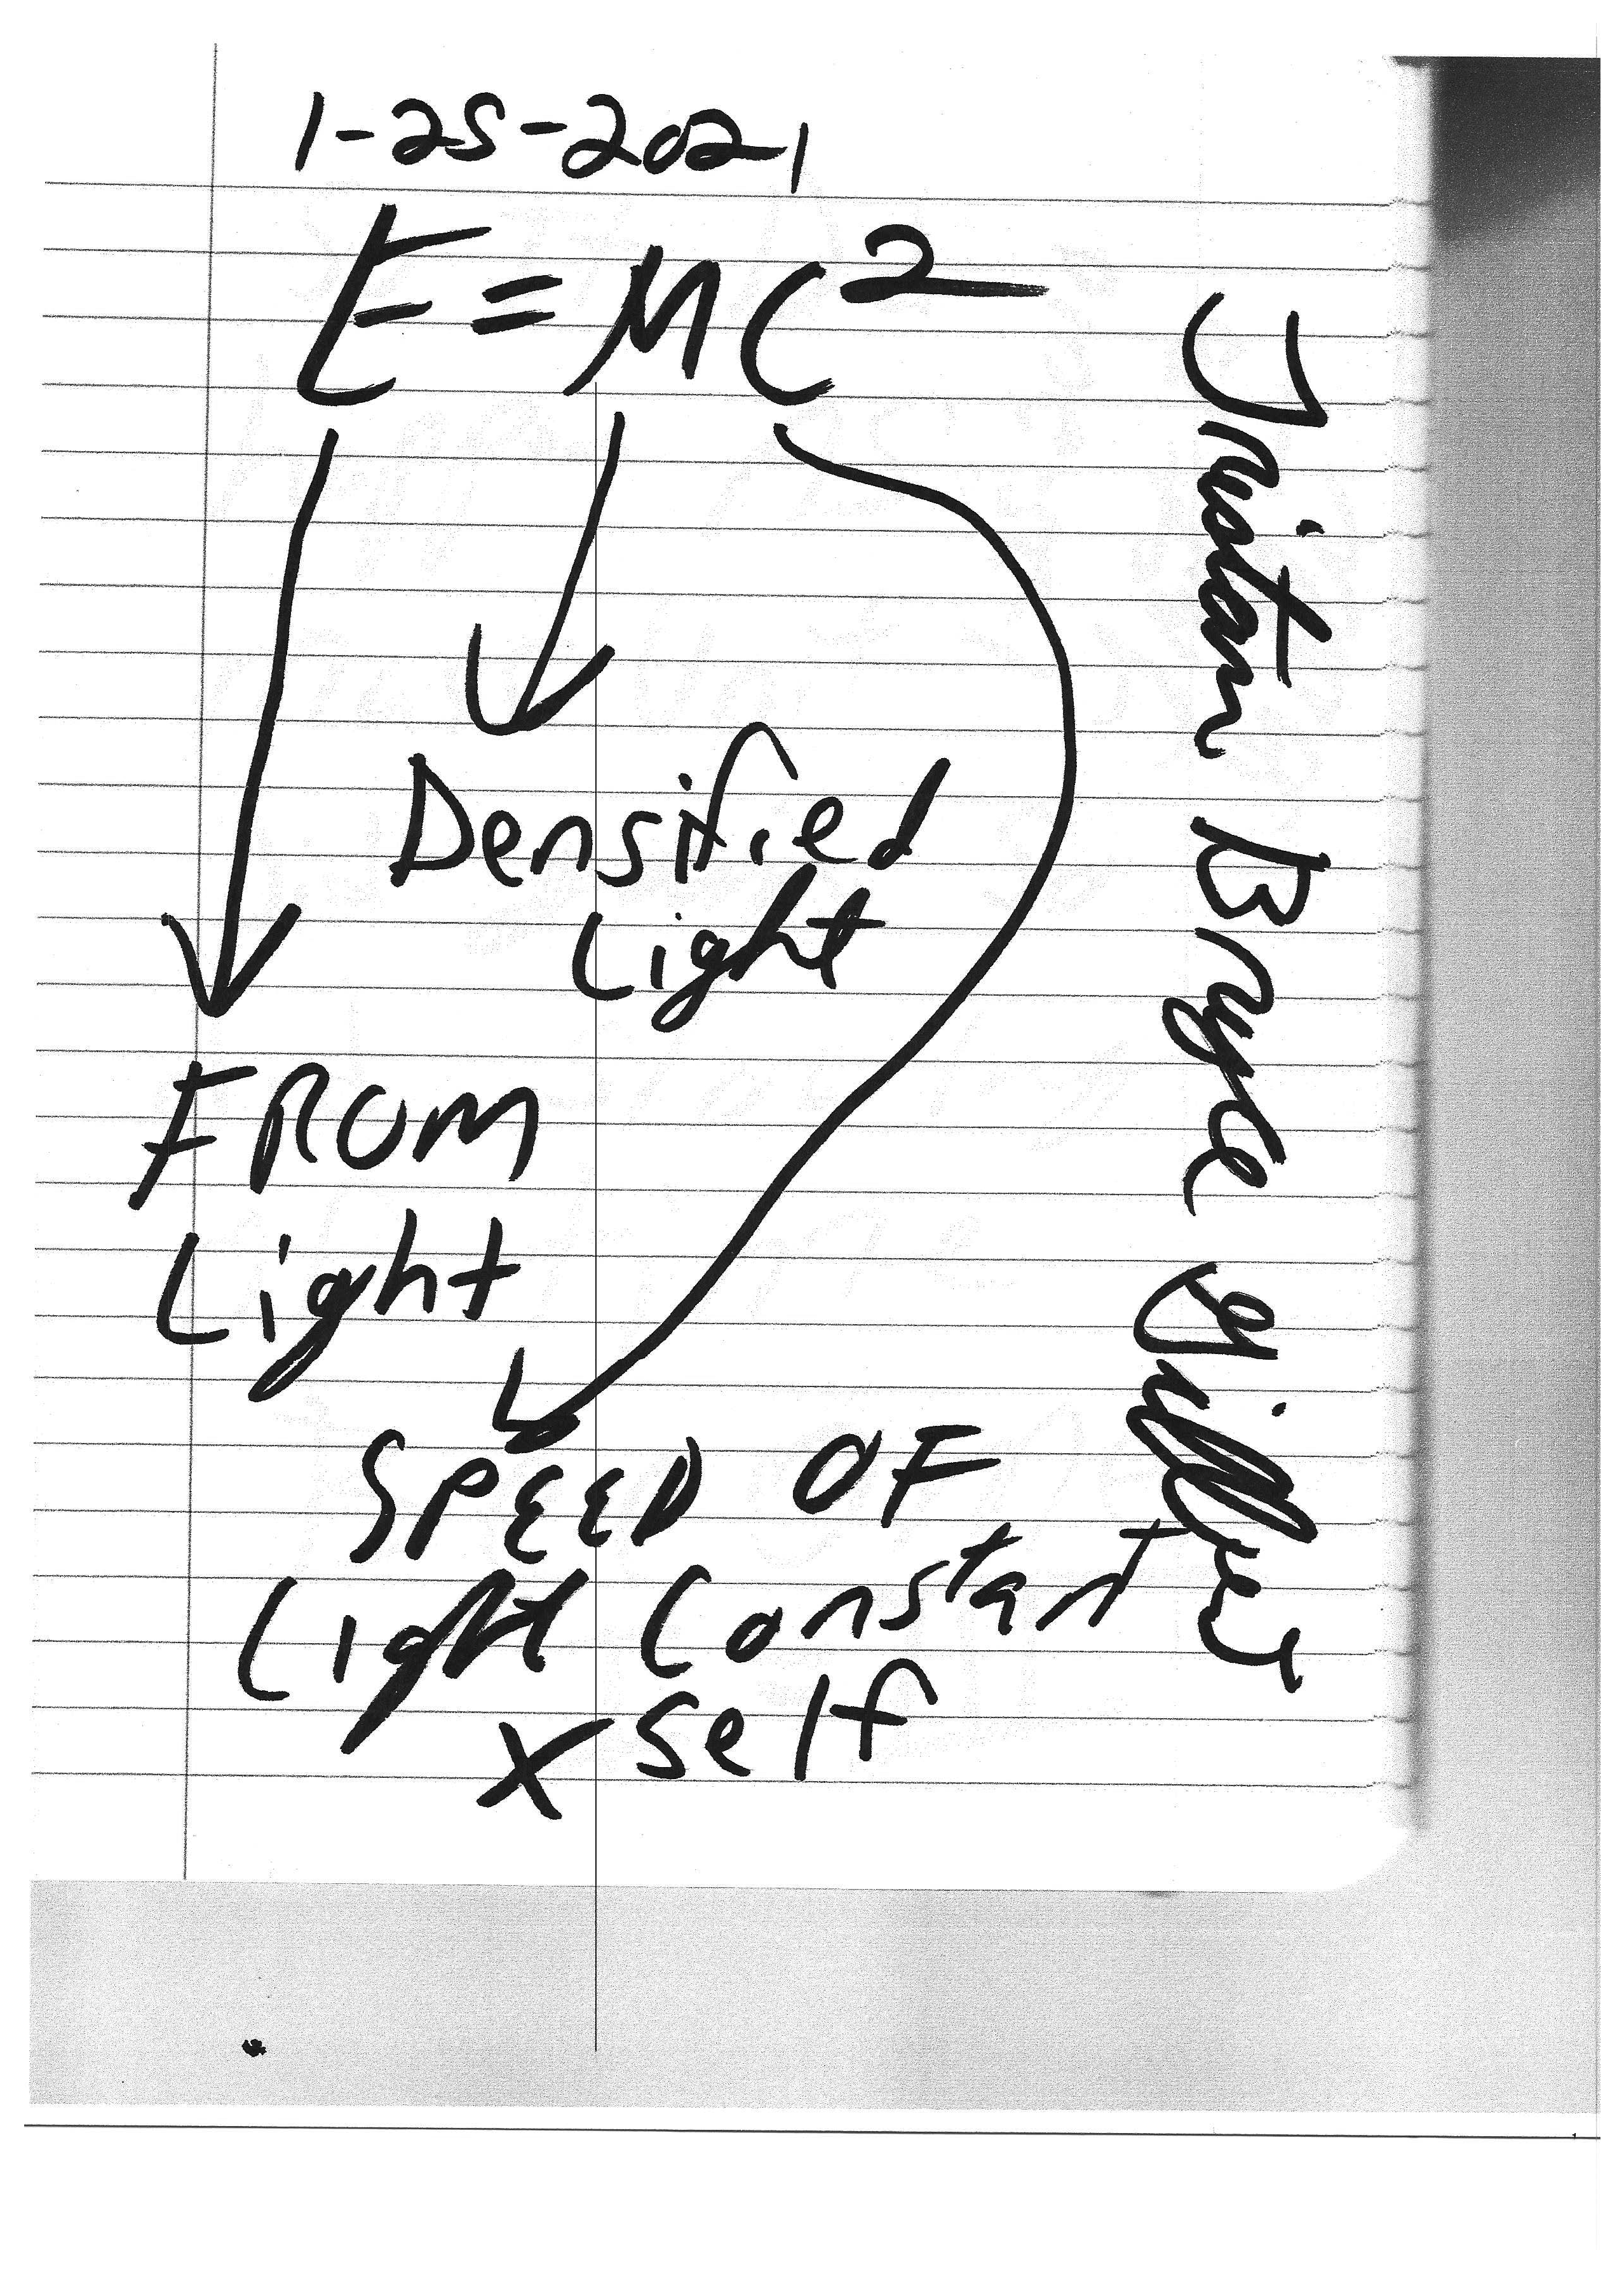 1-25-2021
E=MC²
Densified
Light
FROM
Light
SPEED OF
Light Constant
x Self
Tristan Bryce